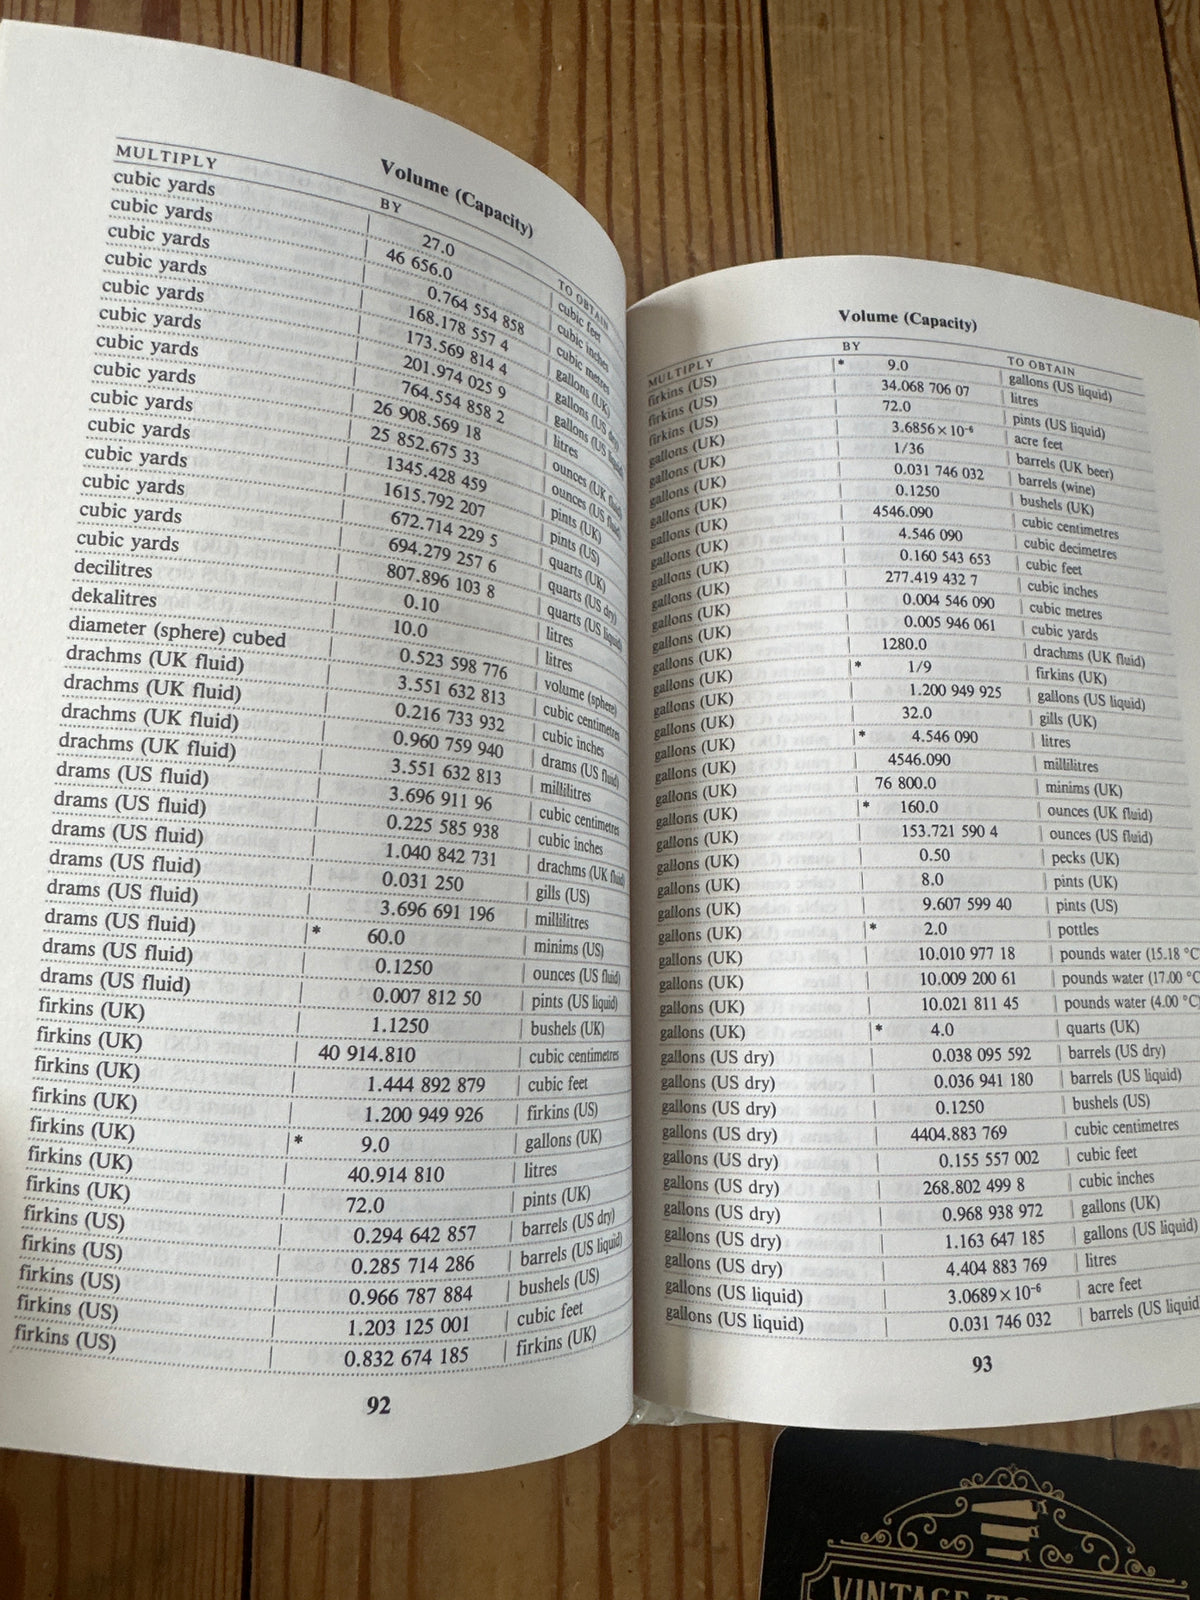 Volume (Capacity)
MULTIPLY BY TO OBTAIN
cubic yards 27.0 cubic feet
cubic yards 46 656.0 cubic inches
cubic yards 0.764 554 858 cubic metres
cubic yards 168.178 557 4 gallons (UK)
cubic yards 173.569 814 4 gallons (US dry)
cubic yards 201.974 025 9 gallons (US liquid)
cubic yards 764.554 858 2 litres
cubic yards 26 908.569 18 ounces (UK fluid)
cubic yards 25 852.675 33 ounces (US fluid)
cubic yards 1345.428 459 pints (UK)
cubic yards 1615.792 207 pints (US)
cubic yards 672.714 229 5 quarts (UK)
cubic yards 694.279 257 6 quarts (US dry)
cubic yards 807.896 103 8 quarts (US liquid)
decilitres 0.10 litres
dekalitres 10.0 litres
diameter (sphere) cubed 0.523 598 776 volume (sphere)
drachms (UK fluid) 3.551 632 813 cubic centimetres
drachms (UK fluid) 0.216 733 932 cubic inches
drachms (UK fluid) 0.960 759 940 drams (US fluid)
drachms (UK fluid) 3.551 632 813 millilitres
drams (US fluid) 3.696 911 96 cubic centimetres
drams (US fluid) 0.225 585 938 cubic inches
drams (US fluid) 1.040 842 731 drachms (UK fluid)
drams (US fluid) 0.031 250 gills (US)
drams (US fluid) 3.696 691 196 millilitres
drams (US fluid) * 60.0 minims (US)
drams (US fluid) 0.1250 ounces (US fluid)
drams (US fluid) 0.007 812 50 pints (US liquid)
firkins (UK) 1.1250 bushels (UK)
firkins (UK) 40 914.810 cubic centimetres
firkins (UK) 1.444 892 879 cubic feet
firkins (UK) 1.200 949 926 firkins (US)
firkins (UK) * 9.0 gallons (UK)
firkins (UK) 40.914 810 litres
firkins (UK) 72.0 pints (UK)
firkins (US) 0.294 642 857 barrels (US dry)
firkins (US) 0.285 714 286 barrels (US liquid)
firkins (US) 0.966 787 884 bushels (US)
firkins (US) 1.203 125 001 cubic feet
firkins (US) 0.832 674 185 firkins (UK)
92
Volume (Capacity)
MULTIPLY BY TO OBTAIN
firkins (US) * 9.0 gallons (US liquid)
firkins (US) 34.068 706 07 litres
firkins (US) 72.0 pints (US liquid)
gallons (UK) 3.6856 × 10⁻⁶ acre feet
gallons (UK) 1/36 barrels (UK beer)
gallons (UK) 0.031 746 032 barrels (wine)
gallons (UK) 0.1250 bushels (UK)
gallons (UK) 4546.090 cubic centimetres
gallons (UK) 4.546 090 cubic decimetres
gallons (UK) 0.160 543 653 cubic feet
gallons (UK) 277.419 432 7 cubic inches
gallons (UK) 0.004 546 090 cubic metres
gallons (UK) 0.005 946 061 cubic yards
gallons (UK) 1280.0 drachms (UK fluid)
gallons (UK) * 1/9 firkins (UK)
gallons (UK) 1.200 949 925 gallons (US liquid)
gallons (UK) 32.0 gills (UK)
gallons (UK) * 4.546 090 litres
gallons (UK) 4546.090 millilitres
gallons (UK) 76 800.0 minims (UK)
gallons (UK) * 160.0 ounces (UK fluid)
gallons (UK) 153.721 590 4 ounces (US fluid)
gallons (UK) 0.50 pecks (UK)
gallons (UK) 8.0 pints (UK)
gallons (UK) 9.607 599 40 pints (US)
gallons (UK) * 2.0 pottles
gallons (UK) 10.010 977 18 pounds water (15.18 °C
gallons (UK) 10.009 200 61 pounds water (17.00 °C
gallons (UK) 10.021 811 45 pounds water (4.00 °C)
gallons (UK) * 4.0 quarts (UK)
gallons (US dry) 0.038 095 592 barrels (US dry)
gallons (US dry) 0.036 941 180 barrels (US liquid)
gallons (US dry) 0.1250 bushels (US)
gallons (US dry) 4404.883 769 cubic centimetres
gallons (US dry) 0.155 557 002 cubic feet
gallons (US dry) 268.802 499 8 cubic inches
gallons (US dry) 0.968 938 972 gallons (UK)
gallons (US dry) 1.163 647 185 gallons (US liquid)
gallons (US dry) 4.404 883 769 litres
gallons (US liquid) 3.0689 × 10⁻⁶ acre feet
gallons (US liquid) 0.031 746 032 barrels (US liquid
93
VINTAGE